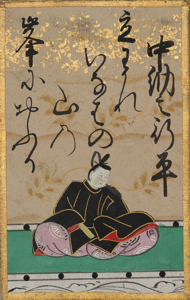 中納言行平
立わかれ
いなはの
山乃
峯におふる